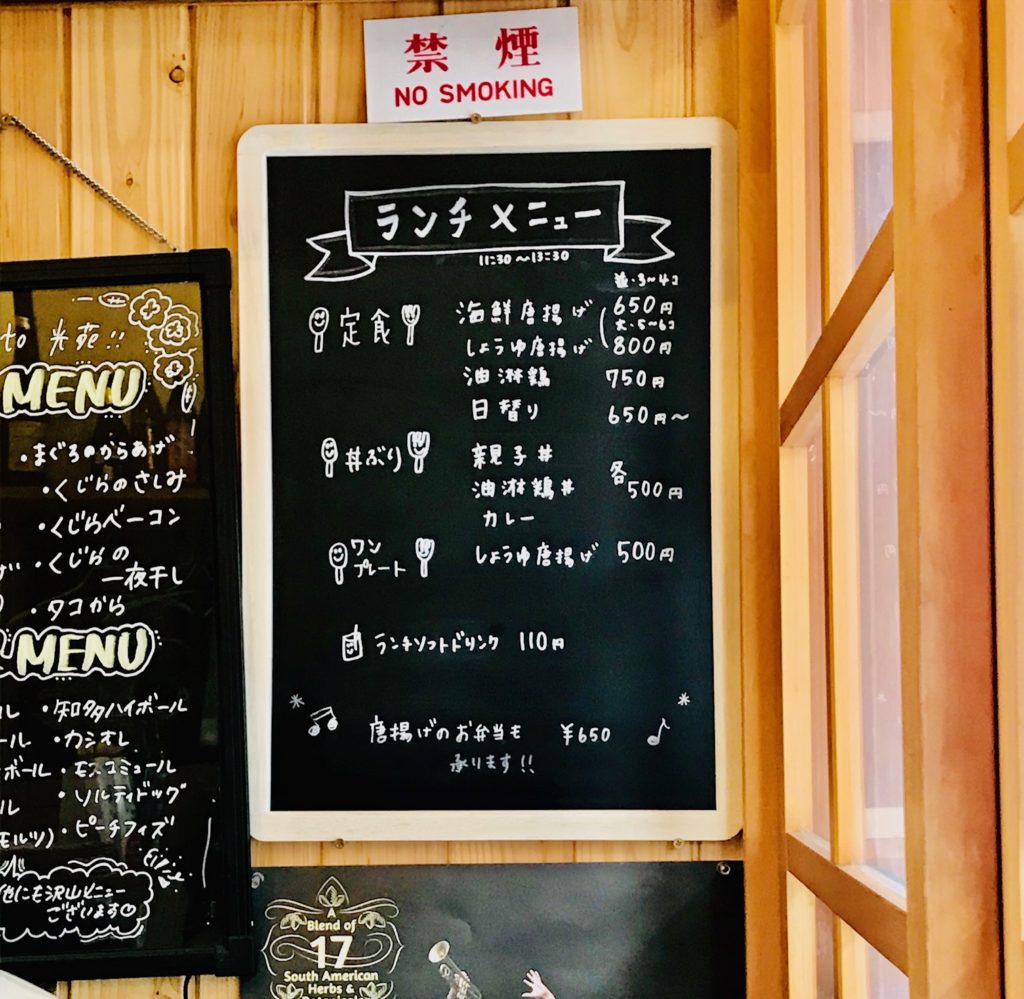 禁煙
NO SMOKING
ランチメニュー
11:30〜13:30
並・3〜4コ
定食
海鮮唐揚げ 650円
大・5〜6コ
しょうゆ唐揚げ 800円
油淋鶏 750円
日替り 650円〜
丼ぶり
親子丼
油淋鶏丼 各500円
カレー
ワンプレート
しょうゆ唐揚げ 500円
ランチソフトドリンク 110円
唐揚げのお弁当も ¥650
承ります!!
MENU
・まぐろのからあげ
・くじらのさしみ
・くじらベーコン
・くじらの
一夜干し
・タコから
MENU
・知多ハイボール
・カシオレ
・モスコミュール
・ソルティドッグ
・ピーチフィズ
他にも沢山メニュー
ございます
A
Blend of
17
South American
Herbs &